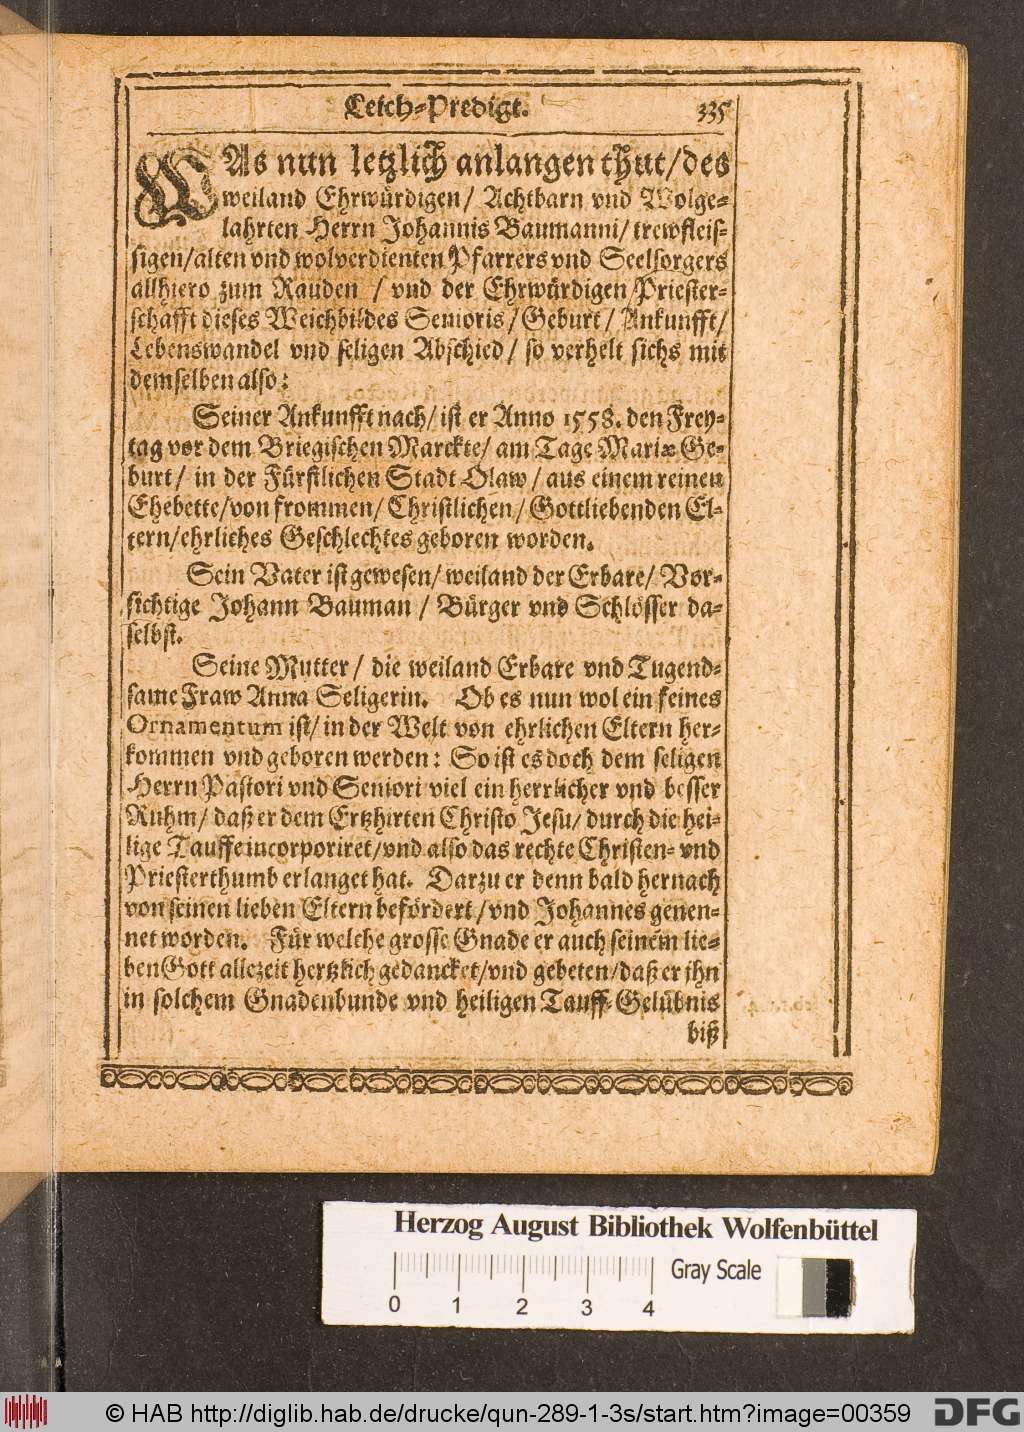 Leich-Predigt. 335
WAs nun letzlich anlangen thut/des
weiland Ehrwürdigen/ Achtbarn vnd Wolge-
lahrten Herrn Johannis Baumanni/ trewfleis-
sigen/alten vnd wolverdienten Pfarrers vnd Seelsorgers
allhiero zum Rauden / vnd der Ehrwürdigen Priester-
schafft dieses Weichbildes Senioris/ Geburt/ Ankunfft/
Lebenswandel vnd seligen Abschied/ so verhelt sichs mit
demselben also:
Seiner Ankunfft nach/ ist er Anno 1558. den Frey-
tag vor dem Briegischen Marckte/ am Tage Mariæ Ge-
burt/ in der Fürstlichen Stadt Olaw/ aus einem reinen
Ehebette/von frommen/ Christlichen/ Gottliebenden El-
tern/ehrliches Geschlechtes geboren worden.
Sein Vater ist gewesen/ weiland der Erbare/ Vor-
sichtige Johann Bauman / Bürger vnd Schlösser da-
selbst.
Seine Mutter/ die weiland Erbare vnd Tugend-
same Fraw Anna Seligerin. Ob es nun wol ein feines
Ornamentum ist/ in der Welt von ehrlichen Eltern her-
kommen vnd geboren werden: So ist es doch dem seligen
Herrn Pastori vnd Seniori viel ein herrlicher vnd besser
Ruhm/ daß er dem Ertzhirten Christo Jesu/ durch die hei-
lige Tauffe incorporiret/vnd also das rechte Christen- vnd
Priesterthumb erlanget hat. Darzu er denn bald hernach
von seinen lieben Eltern befördert/vnd Johannes genen-
net worden. Für welche grosse Gnade er auch seinem lie-
ben Gott allezeit hertzlich gedancket/vnd gebeten/daß er jhn
in solchem Gnadenbunde vnd heiligen Tauff-Gelübnis
biß
Herzog August Bibliothek Wolfenbüttel
Gray Scale
0 1 2 3 4
© HAB http://diglib.hab.de/drucke/qun-289-1-3s/start.htm?image=00359 DFG